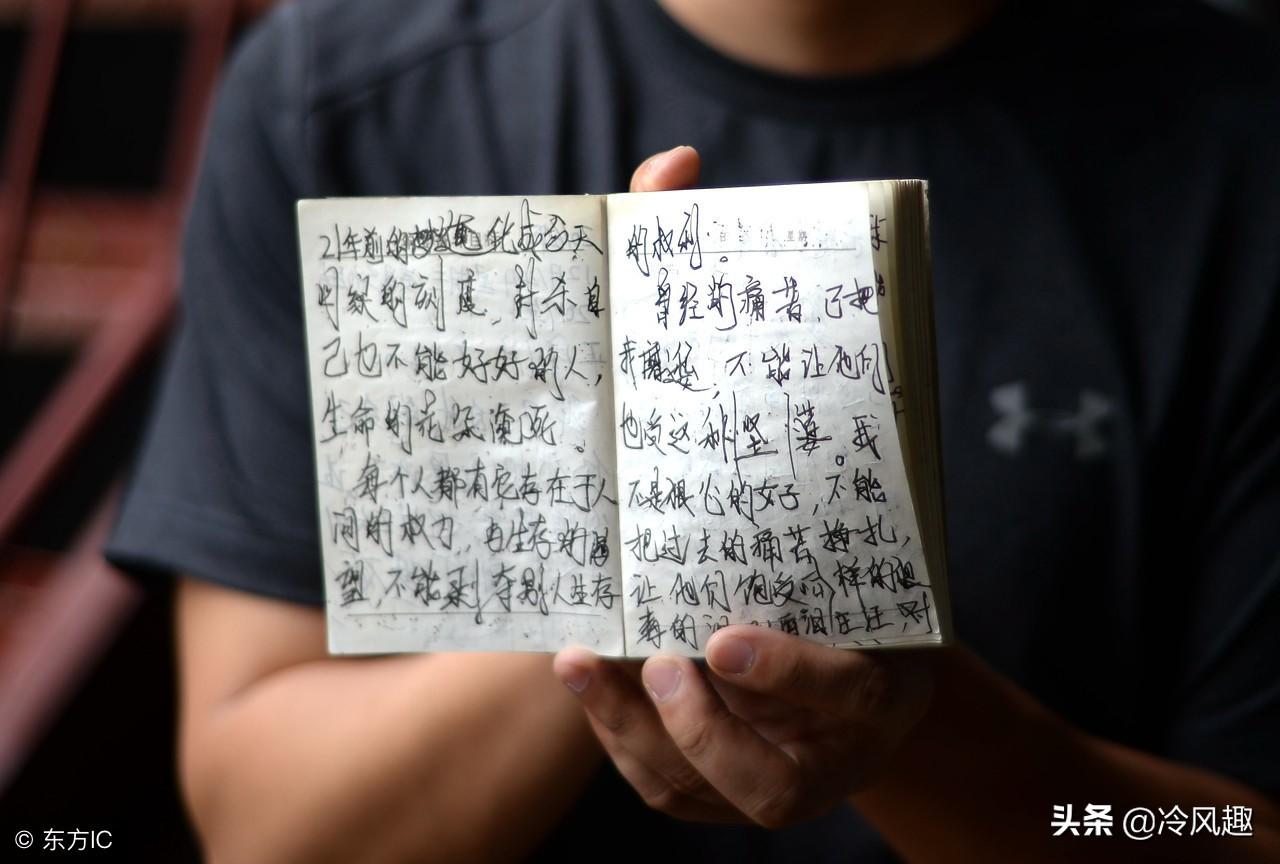 21年前的化成今天
时候的刻度，封杀自
己也不能好好的人，
生命的花朵凋死。
每个人都有它存在于人
间的权力，由生存的渴
望，不能剥夺别人生存
的权利。
曾经的痛苦，已把
我折，不能让他们
也受这种坚。我
不是狠心的女子，不能
把过去的痛苦挣扎，
让他们饱受同样的
的泪汪汪，对
星期
© 东方IC
头条 @冷风趣